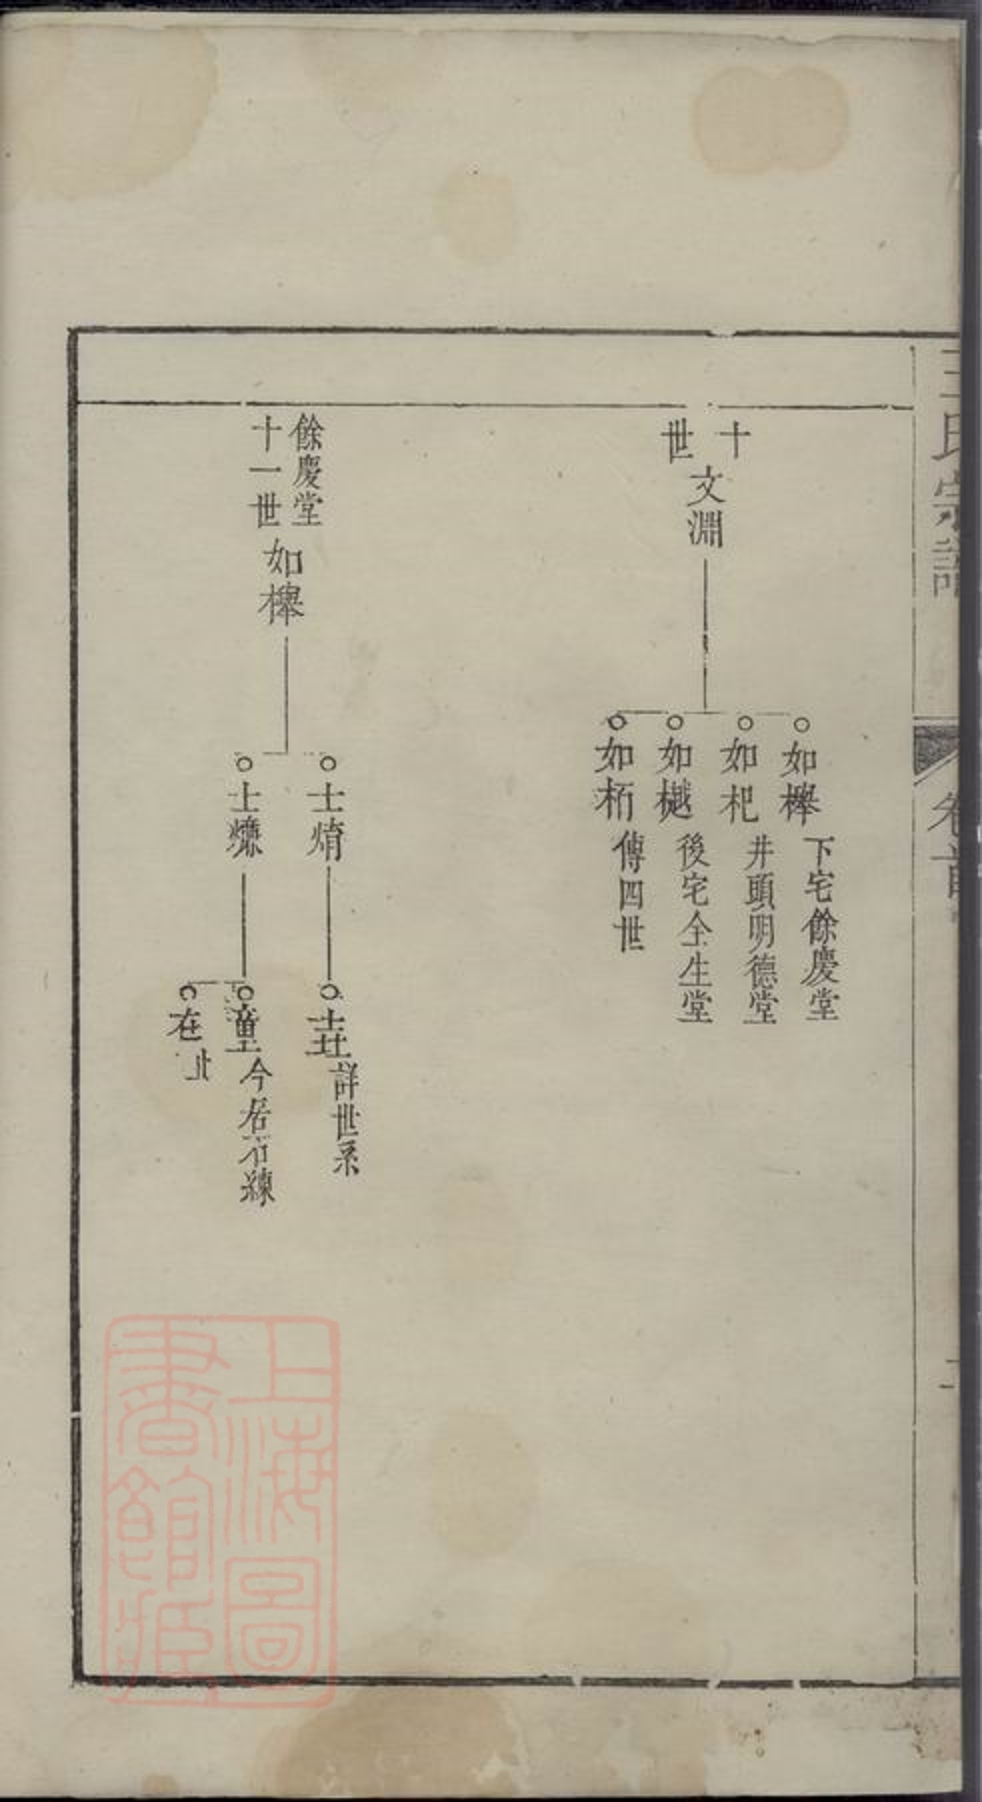 王氏宗譜
卷首
十世
文淵
如櫸 下宅餘慶堂
如杞 井頭明德堂
如樾 後宅全生堂
如栢 傳四世
餘慶堂
十一世
如櫸
士焴 詳世系
士爌
今居石練
在
上海圖書館藏